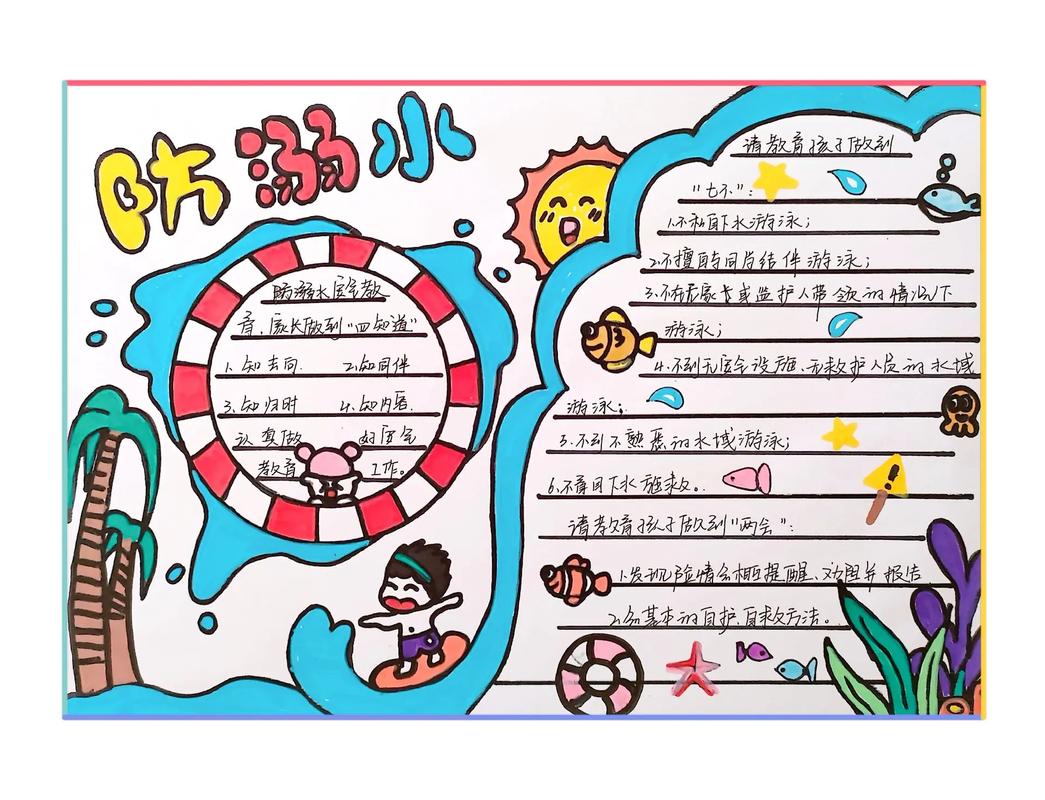 防溺水
防溺水安全教
育,家长做到“四知道”
1.知去向 2.知同伴
3.知归时 4.知内容
认真做 好安全
教育 工作。
请教育孩子做到
“七不”:
1.不私自下水游泳;
2.不擅自与同学结伴游泳;
3.不在无家长或监护人带领的情况下
游泳;
4.不到无安全设施、无救护人员的水域
游泳;
5.不到不熟悉的水域游泳;
6.不盲目下水施救。
请教育孩子做到“两会”:
1.发现险情会相互提醒、劝阻并报告
2.会基本的自护、自救方法。